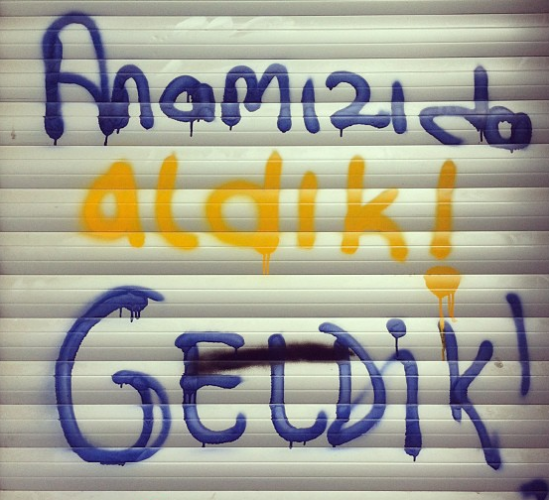 Anamızı da
aldık!
GELDİK!